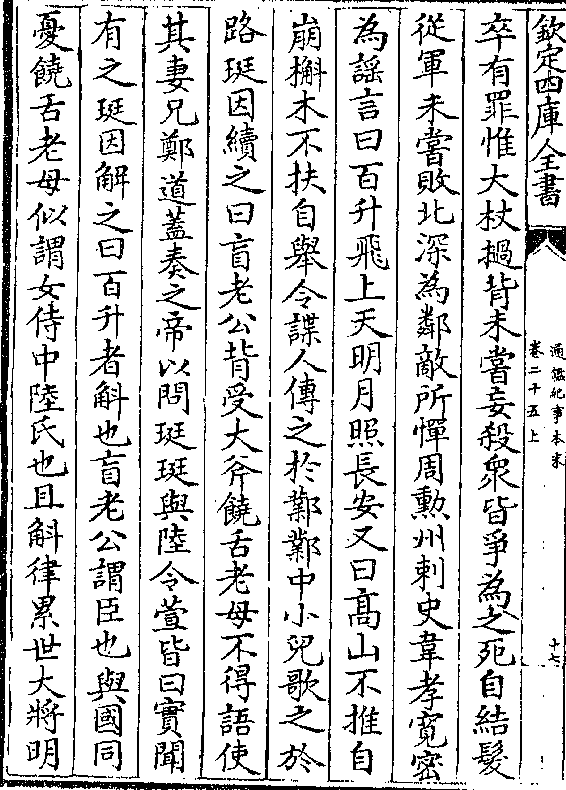 欽定四庫全書
通鑑紀事本末
卷二十五上
十七
卒有罪惟大杖撾背未嘗妄殺衆皆爭為之死自結髮
從軍未嘗敗北深為鄰敵所憚周勲州刺史韋孝寛密
為謡言曰百升飛上天明月照長安又曰髙山不推自
崩槲木不扶自舉令諜人傳之於鄴鄴中小兒歌之於
路珽因續之曰盲老公背受大斧饒舌老母不得語使
其妻兄鄭道蓋奏之帝以問珽珽與陸令萱皆曰實聞
有之珽因解之曰百升者斛也盲老公謂臣也與國同
憂饒舌老母似謂女侍中陸氏也且斛律累世大將明